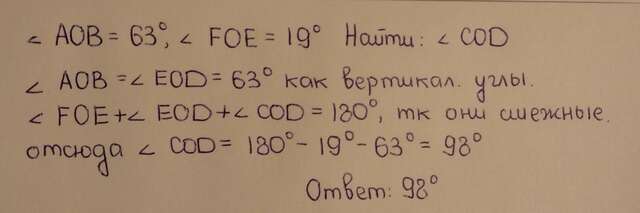 ∠ AOB = 63°, ∠ FOE = 19° Найти: ∠ COD
∠ AOB = ∠ EOD = 63° как вертикал. углы.
∠ FOE + ∠ EOD + ∠ COD = 180°, тк они смежные.
отсюда ∠ COD = 180° - 19° - 63° = 98°
Ответ: 98°